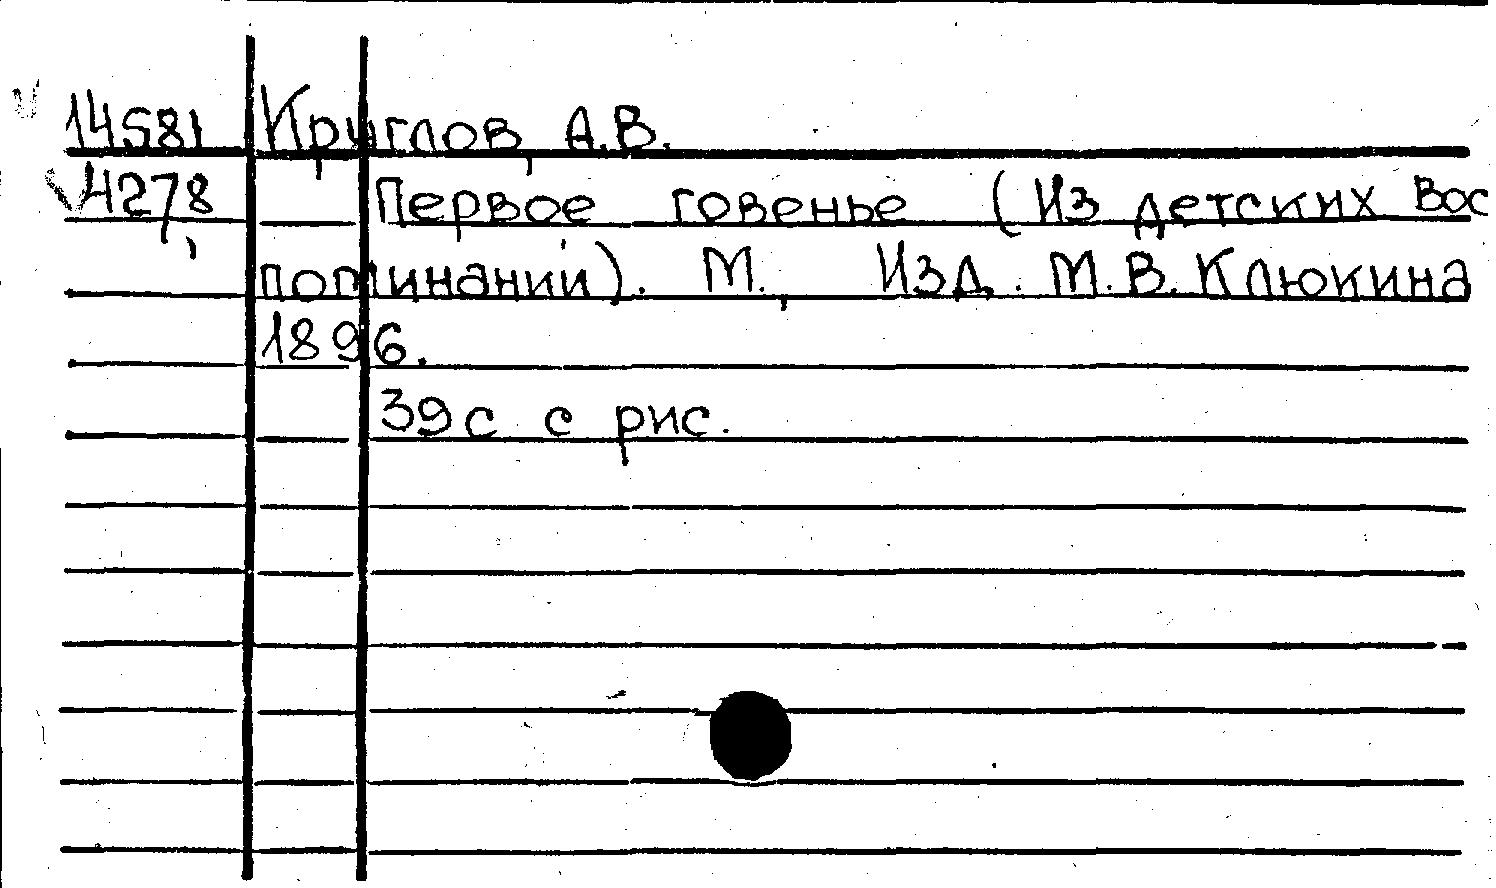 14581 Круглов, А.В.
4278 Первое говенье (Из детских Вос
поминаний). М., Изд. М.В. Клюкина
1896.
39 с с рис.